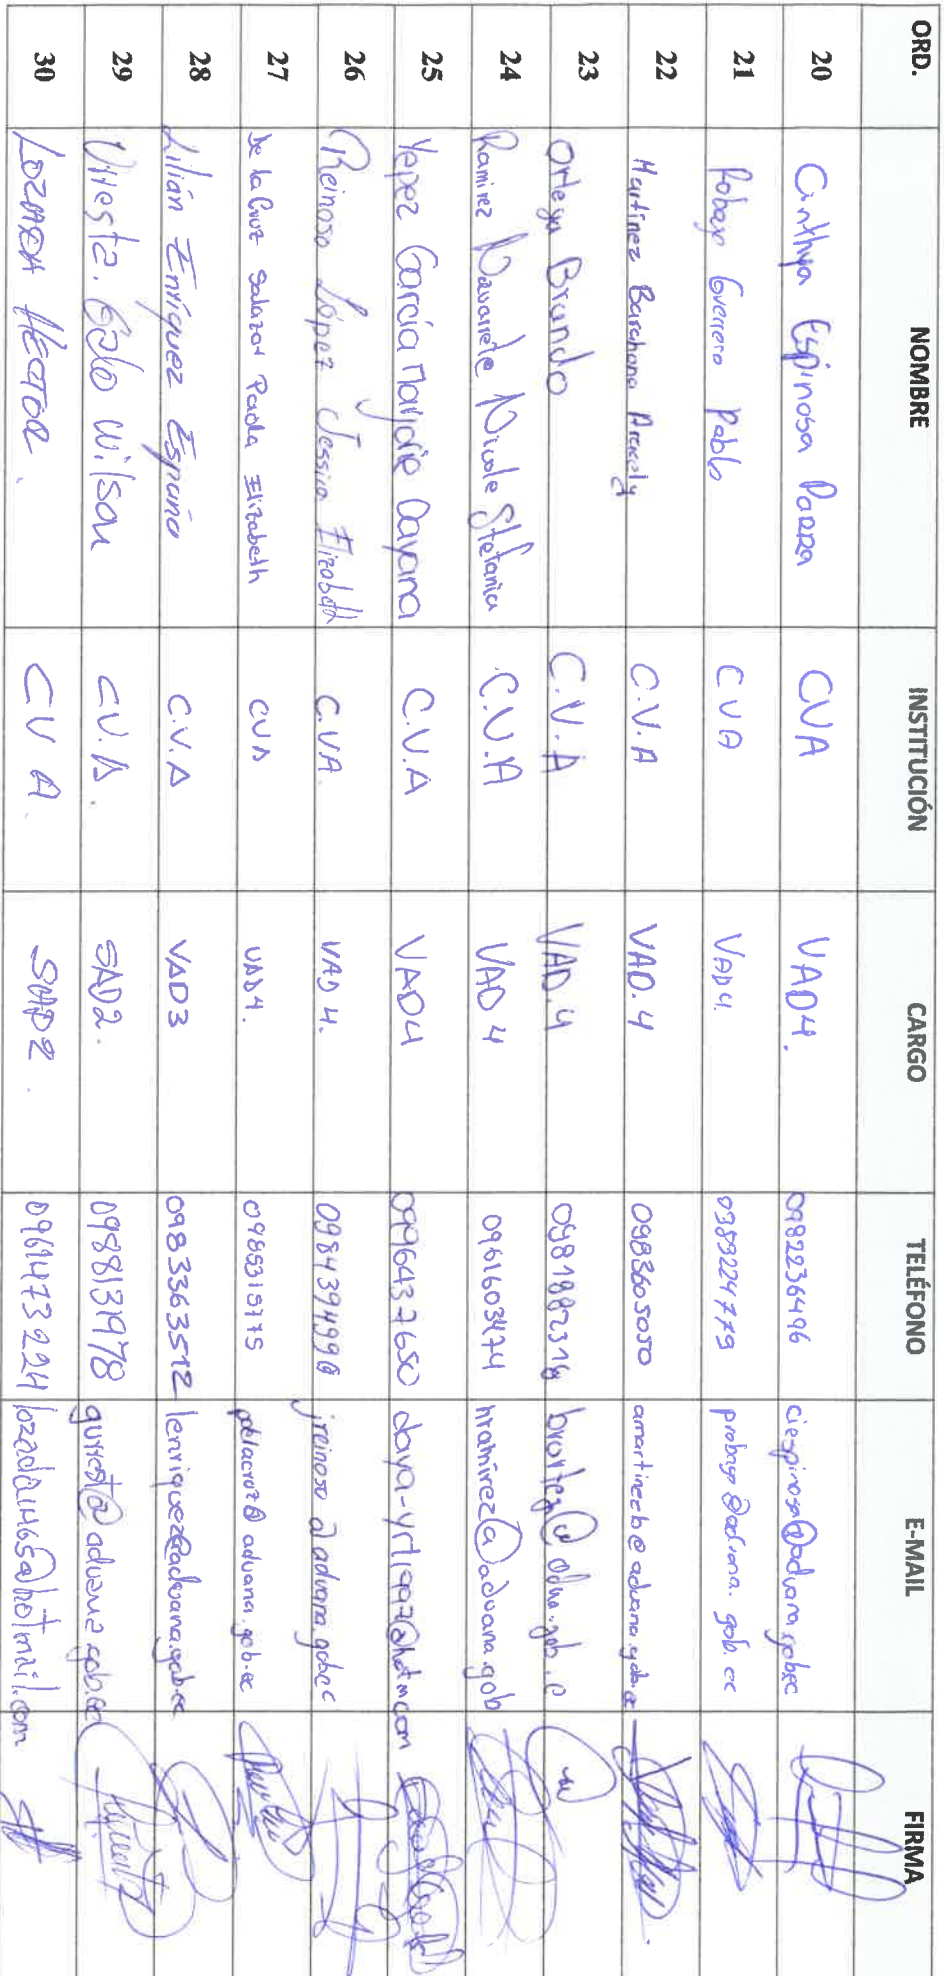 ORD. NOMBRE INSTITUCIÓN CARGO TELÉFONO E-MAIL FIRMA
20 Cinthya Espinosa Parra CVA VAD4. 0982236496 ciespinosa@aduana.gob.ec
21 Robayo Guerrero Pablo CVA VAD4. 0389224779 probayo@aduana.gob.ec
22 Martinez Barahona Aracely C.V.A VAD.4 0983605050 amartinezb@aduana.gob.ec
23 Ortega Brando C.V.A VAD.4
24 Ramirez Navarrete Nicole Stefania C.V.A VAD 4 0961603474 nramirez@aduana.gob
25 Yepez García Marjorie Dayana C.V.A VAD4 0996437650
26 Reinoso López Jessica Elizabeth C.VA. VAD 4. 0984394990 jreinoso@aduana.gob.ec
27 De la Cruz Salazar Paola Elizabeth CVA VAD4. 0985315775 pdelacruz@aduana.gob.ec
28 Lilián Enríquez España C.V.A VAD3 0983363512 lenriquez@aduana.gob.ec
29 Galo Wilson C.V.A. SAD2. 0988131978
30 LOZADA HÉCTOR. CVA. SAD2. 0961473224 lozada1465@hotmail.com